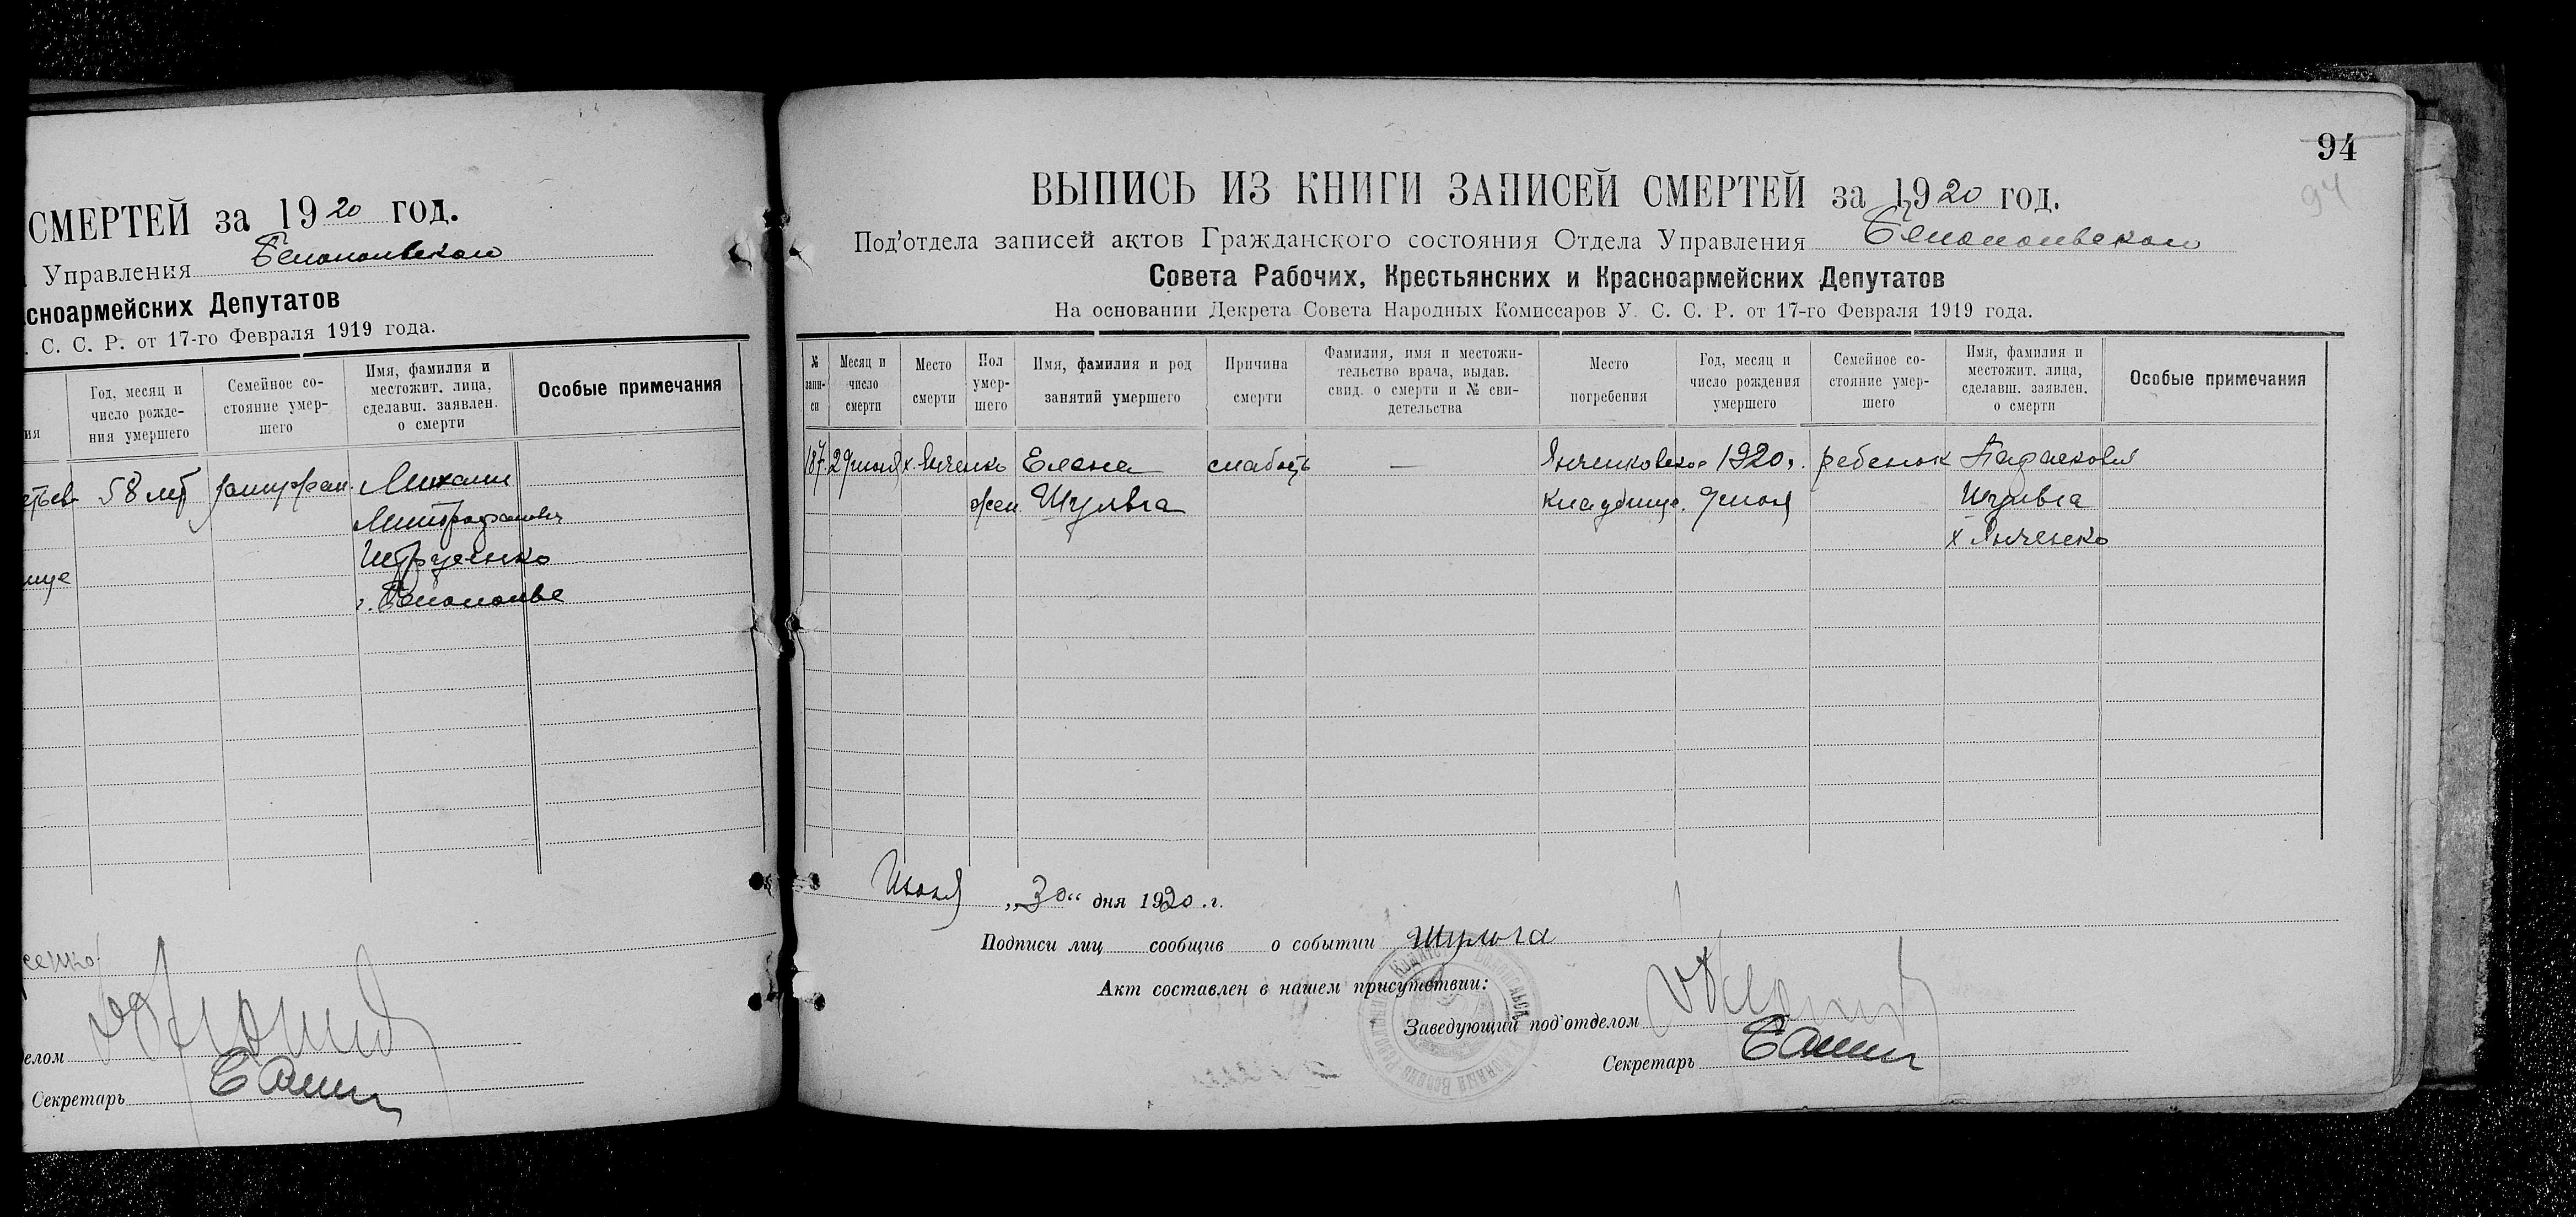 СМЕРТЕЙ за 1920 год.
Управления Белопольского
сноармейских Депутатов
. С. С. Р. от 17-го Февраля 1919 года.
ия
Год, месяц и число рожде- ния умершего
Семейное со- стояние умер- шего
Имя, фамилия и местожит. лица, сделавш. заявлен. о смерти
Особые примечания
58 лет
Михаил
Митрофанович
г. Белополье
ище
сенко
елом
Секретарь
94
94
ВЫПИСЬ ИЗ КНИГИ ЗАПИСЕЙ СМЕРТЕЙ за 1920 год.
Под'отдела записей актов Гражданского состояния Отдела Управления Белопольского
Совета Рабочих, Крестьянских и Красноармейских Депутатов
На основании Декрета Совета Народных Комиссаров У. С. С. Р. от 17-го Февраля 1919 года.
№ запи- си
Месяц и число смерти
Место смерти
Пол умер- шего
Имя, фамилия и род занятий умершего
Причина смерти
Фамилия, имя и местожи- тельство врача, выдав. свид. о смерти и № сви- детельства
Место погребения
Год, месяц и число рождения умершего
Семейное со- стояние умер- шего
Имя, фамилия и местожит. лица, сделавш. заявлен. о смерти
Особые примечания
187. 29 июня х. Янченко Елена слабость — Янченковское 1920 г. ребенок Парасковия
жен. Шульга кладбище. Шульга
х Янченко
Июня „30“ дня 1920 .г.
Подписи лиц сообщив о событии Шульга
Акт составлен в нашем присутствии:
Заведующий под'отделом
Секретарь